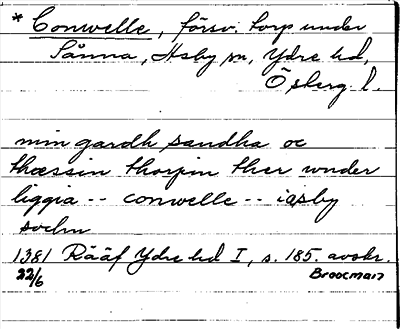 * Conwelle, försv. torp under
Sånna, Asby sn, Ydre hd,
Ösberg l.
min gardh sandha oc
thæssin thorpin ther wnder
liggia -- conwelle -- iasby
sochn
1381 Rääf Ydre hd I, s. 185. avskr.
22/6 Broocman